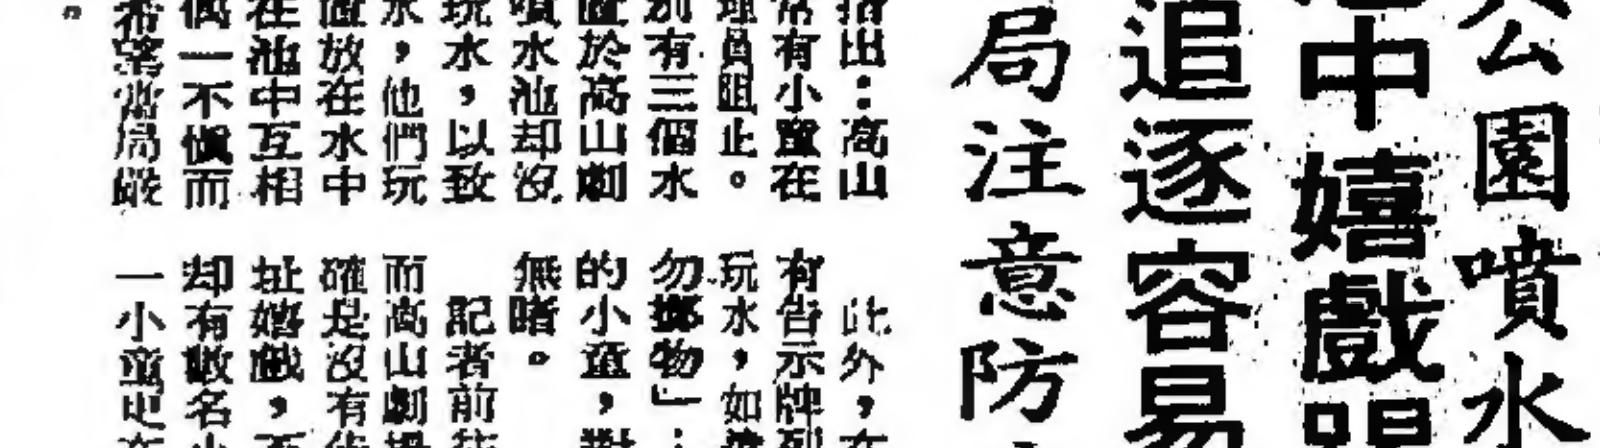 公園噴水
中嬉戲
追逐容易
局注意防
指出：高山
常有小童在
理員阻止。
別有三個水
置於高山劇
噴水池却沒
玩水，以致
水，他們玩
置放在水中
在池中互相
偶一不慎而
希望當局嚴
。
此外，在
有告示牌列
玩水，如
勿擲物」：
的小童，對
無睹。
記者前往
而高山劇場
確是沒有
址嬉戲，而
却有數名小
一小童更在